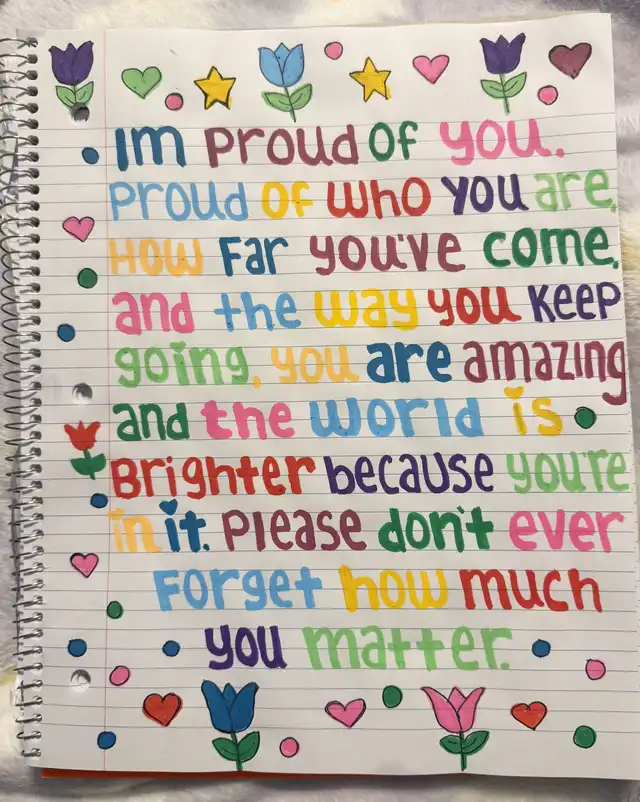 Im proud of you.
Proud of who you are,
How far you've come,
and the way you keep
going, you are amazing
and the world is
Brighter because you're
in it. Please don't ever
Forget how much
you matter.